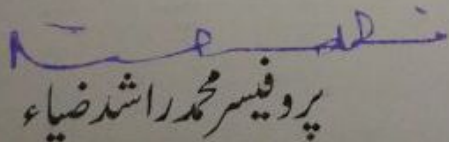 پروفیسر محمد راشد ضیاء